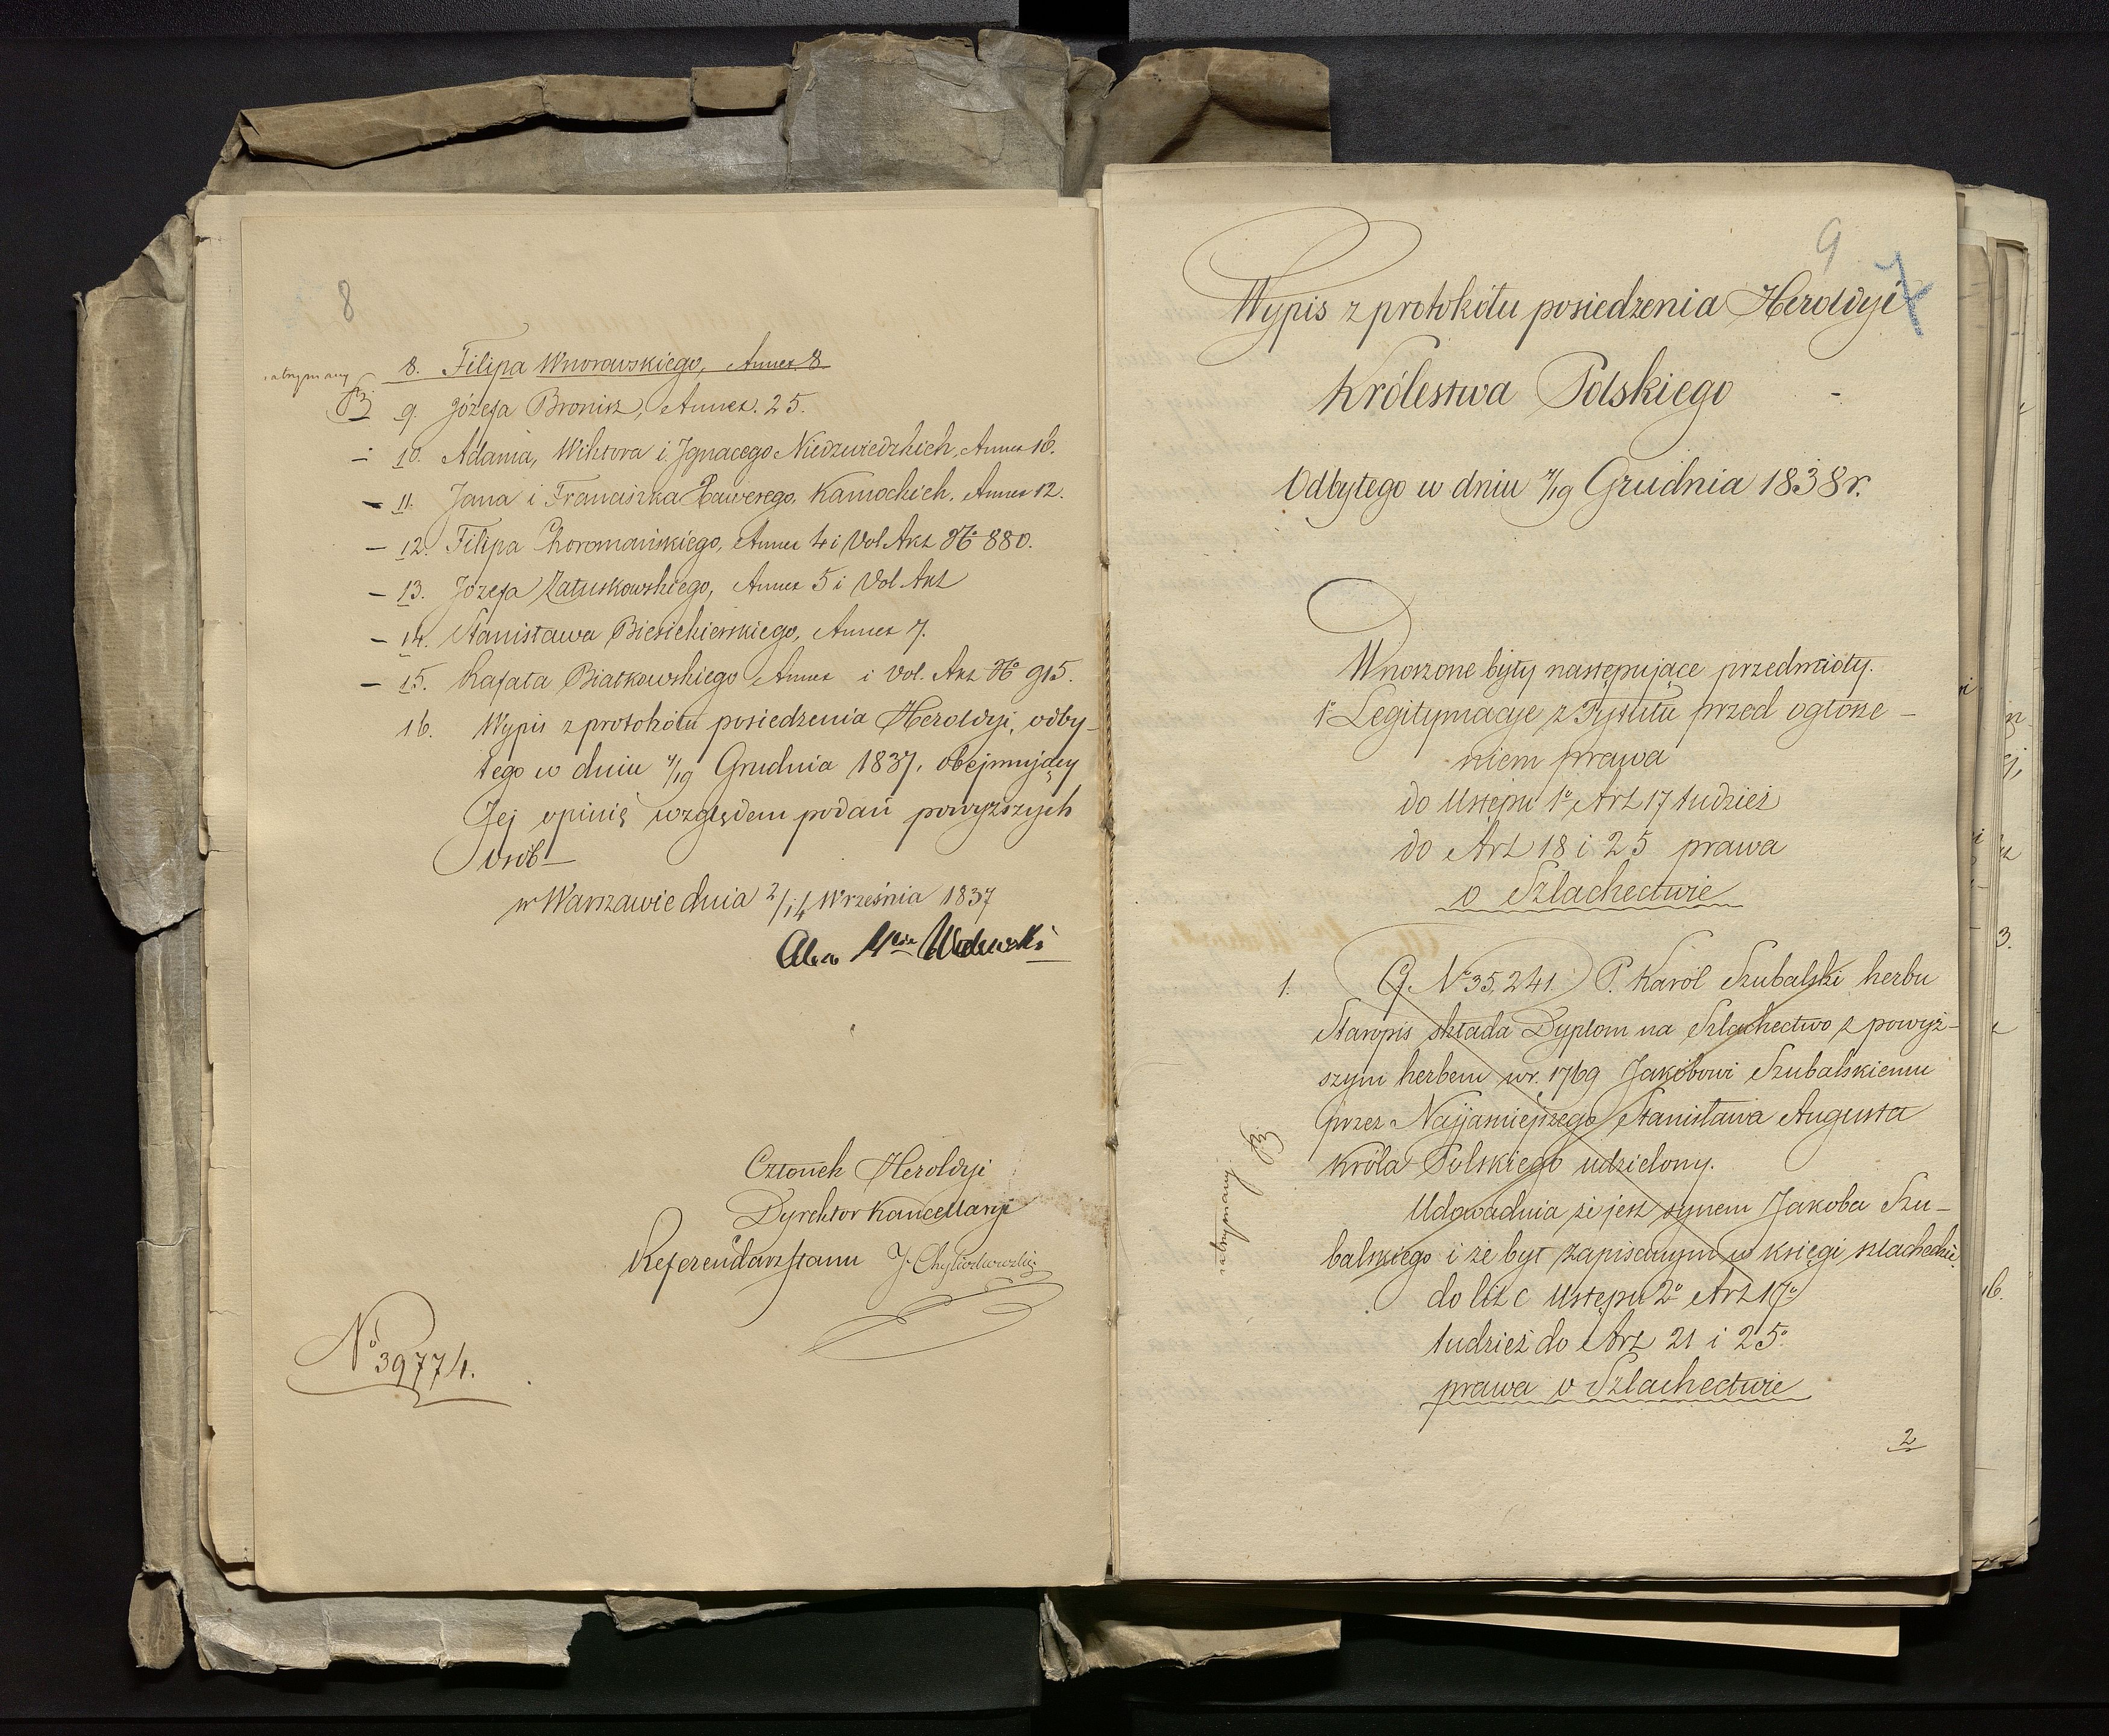 8
8. Filipa Wnorowskiego, Annex 8
zatrzymany
9. Józefa Bronisz, Annex. 25.
– 10. Adama, Wiktora i Ignacego Niedzwiedzkich, Annex 16.
– 11. Jana i Franciszka Xawerego Kamockich, Annex 12.
– 12. Filipa Choromańskiego, Annex 4 i Vol Akt No 880.
– 13. Józefa Załuskowskiego, Annex 5 i Vol Akt
– 14. Stanisława Biesiekierskiego, Annex 7.
– 15. Rafała Białkowskiego Annex i Vol. Akt No 915.
16. Wypis z protokółu posiedzenia Heroldyi, odby-
tego w dniu 7/19 Grudnia 1837, obejmujący
Jej opinię względem podań powyższych
Osób –
w Warszawie dnia 2/14 Września 1837
Członek Heroldyi
Dyrektor Kancellaryi
Referendarz Stanu
No 39774.
9
7
Wypis z protokółu posiedzenia Heroldyi
Królestwa Polskiego -
Odbytego w dniu 7/19 Grudnia 1838 r.
Wnoszone były następujące przedmioty.
1o Legitymacye z Tytułu przed ogłosze-
niem prawa
do Ustępu 1o Art 17 tudzież
do Art 18 i 25 prawa
o Szlachectwie
1. G. No 35,241. P. Karól Szubalski herbu
Staropis składa Dyplom na Szlachectwo z powyż-
szym herbem w r. 1769 Jakóbowi Szubalskiemu
przez Najjaśniejszego Stanisława Augusta
Króla Polskiego udzielony.
zatrzymany
Udowadnia że jest synem Jakoba Szu-
balskiego i że był zapisanym w księgi szlacheckie.
do lit c Ustępu 2o Art 17o
tudzież do Art 21 i 25o
prawa o Szlachectwie
2